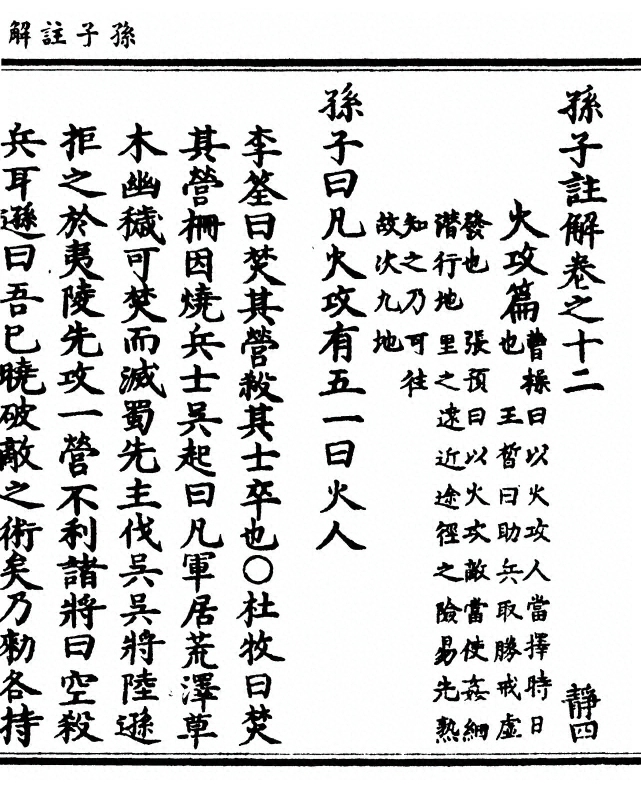 孫子註解
孫子註解卷之十二
靜四
火攻篇
曹操曰以火攻人當擇時日
也　王晳曰助兵取勝戒虛
發也　張預曰以火攻敵當使姦細
潛行地里之遠近途徑之險易先熟
知之乃可往
故次九地
孫子曰凡火攻有五一曰火人
李筌曰焚其營殺其士卒也○杜牧曰焚
其營柵因燒兵士吳起曰凡軍居荒澤草
木幽穢可焚而滅蜀先主伐吳吳將陸遜
拒之於夷陵先攻一營不利諸將曰空殺
兵耳遜曰吾已曉破敵之術矣乃勑各持